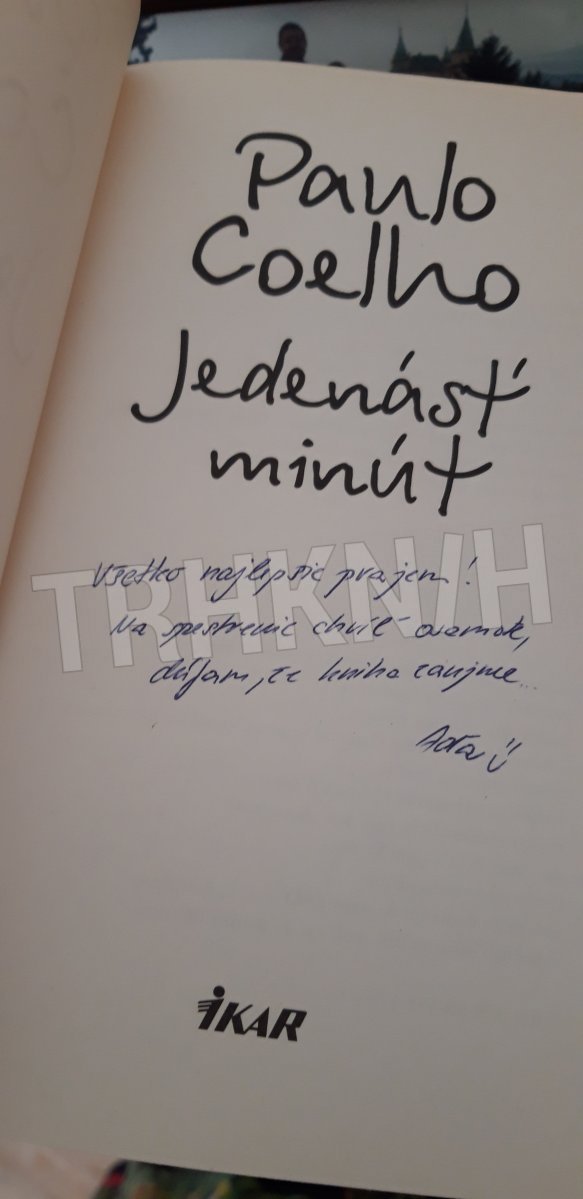 Paulo
Coelho
Jedenásť
minút
Všetko najlepšie prajem!
Na spestrenie chvíľ osamote,
dúfam, že kniha zaujme...
TRHKNÍH
IKAR